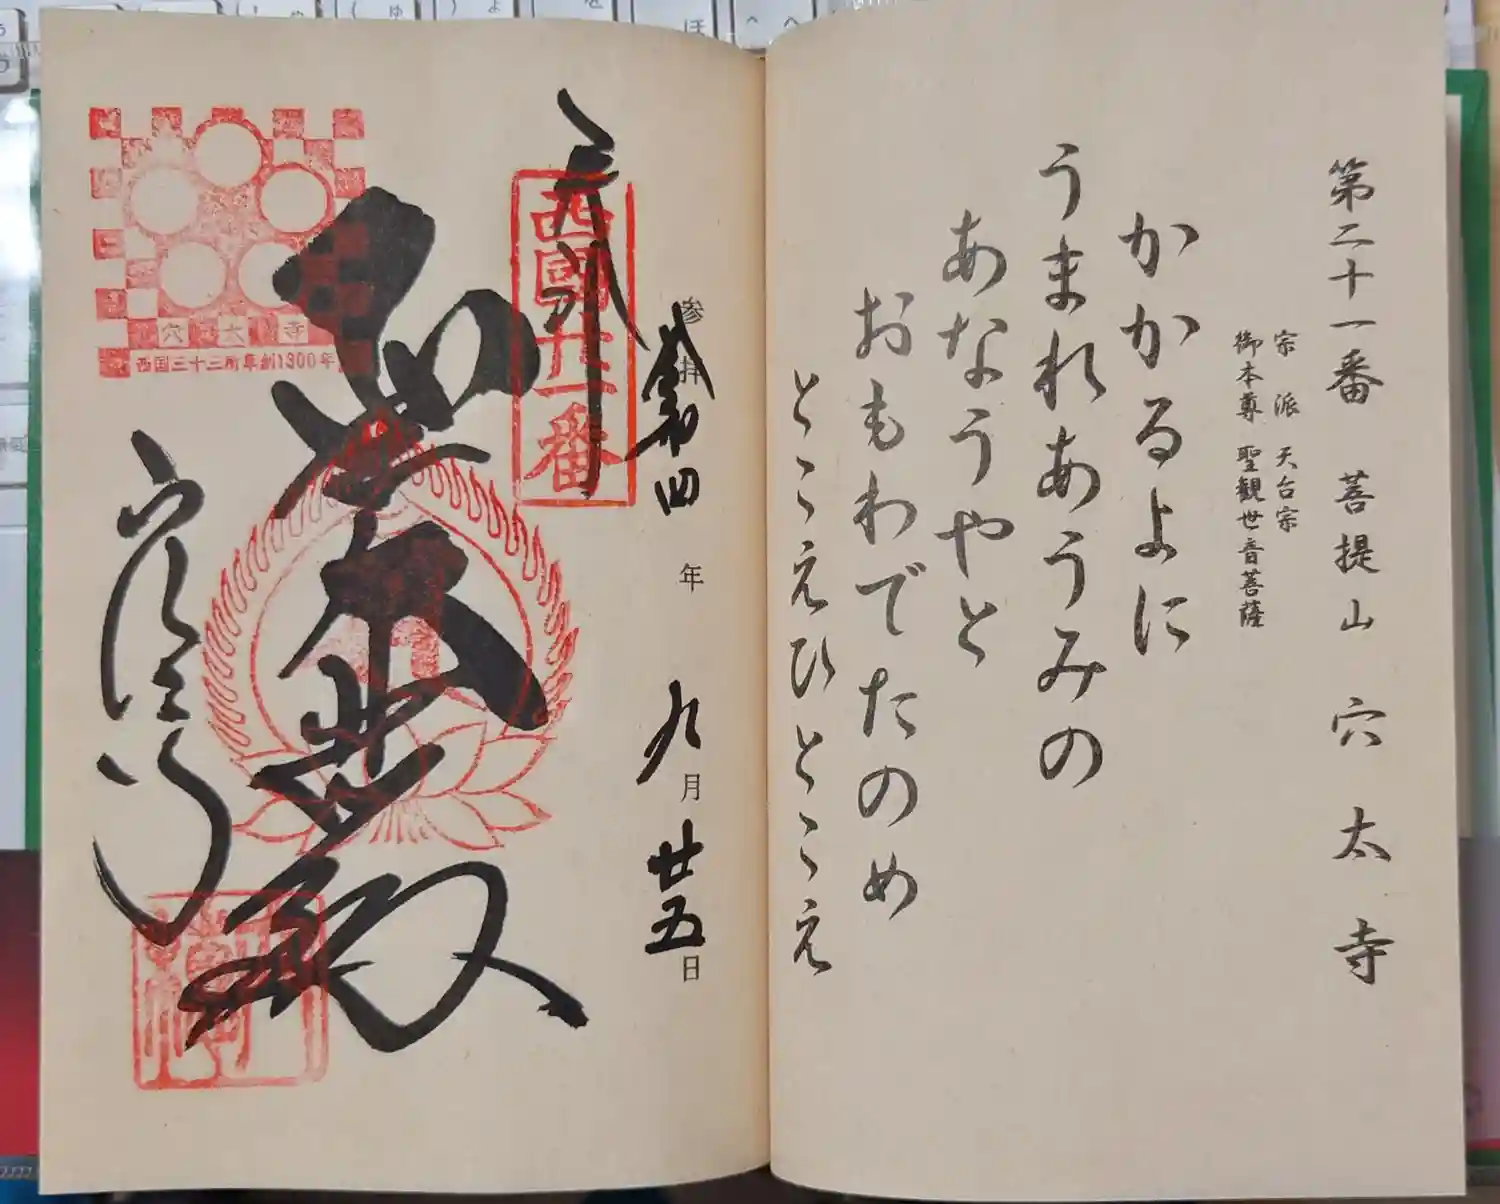 第二十一番 菩提山 穴太寺
宗派 天台宗
御本尊 聖観世音菩薩
かかるよに
うまれあうみの
あなうやと
おもわでたのめ
とこえひとこえ
参拝
令和四年九月廿五日
奉拝
西國廿一番
聖大悲殿
穴太寺
穴太寺
西国三十三所草創1300年